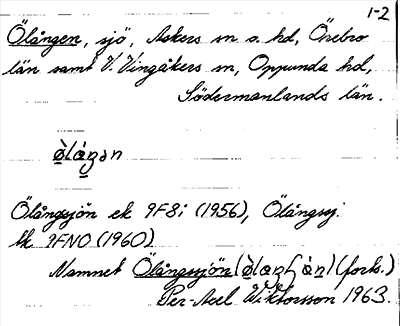 1-2
Ölången, sjö, Askers sn o. hd, Örebro
län samt V. Vingåkers sn, Oppunda hd,
Södermanlands län.
Ölångsjön ek 9F8i (1956), Ölångsj.
tk 9FNO (1960)
Namnet Ölångssjön (forts.)
Per-Axel Wiktorsson 1963.